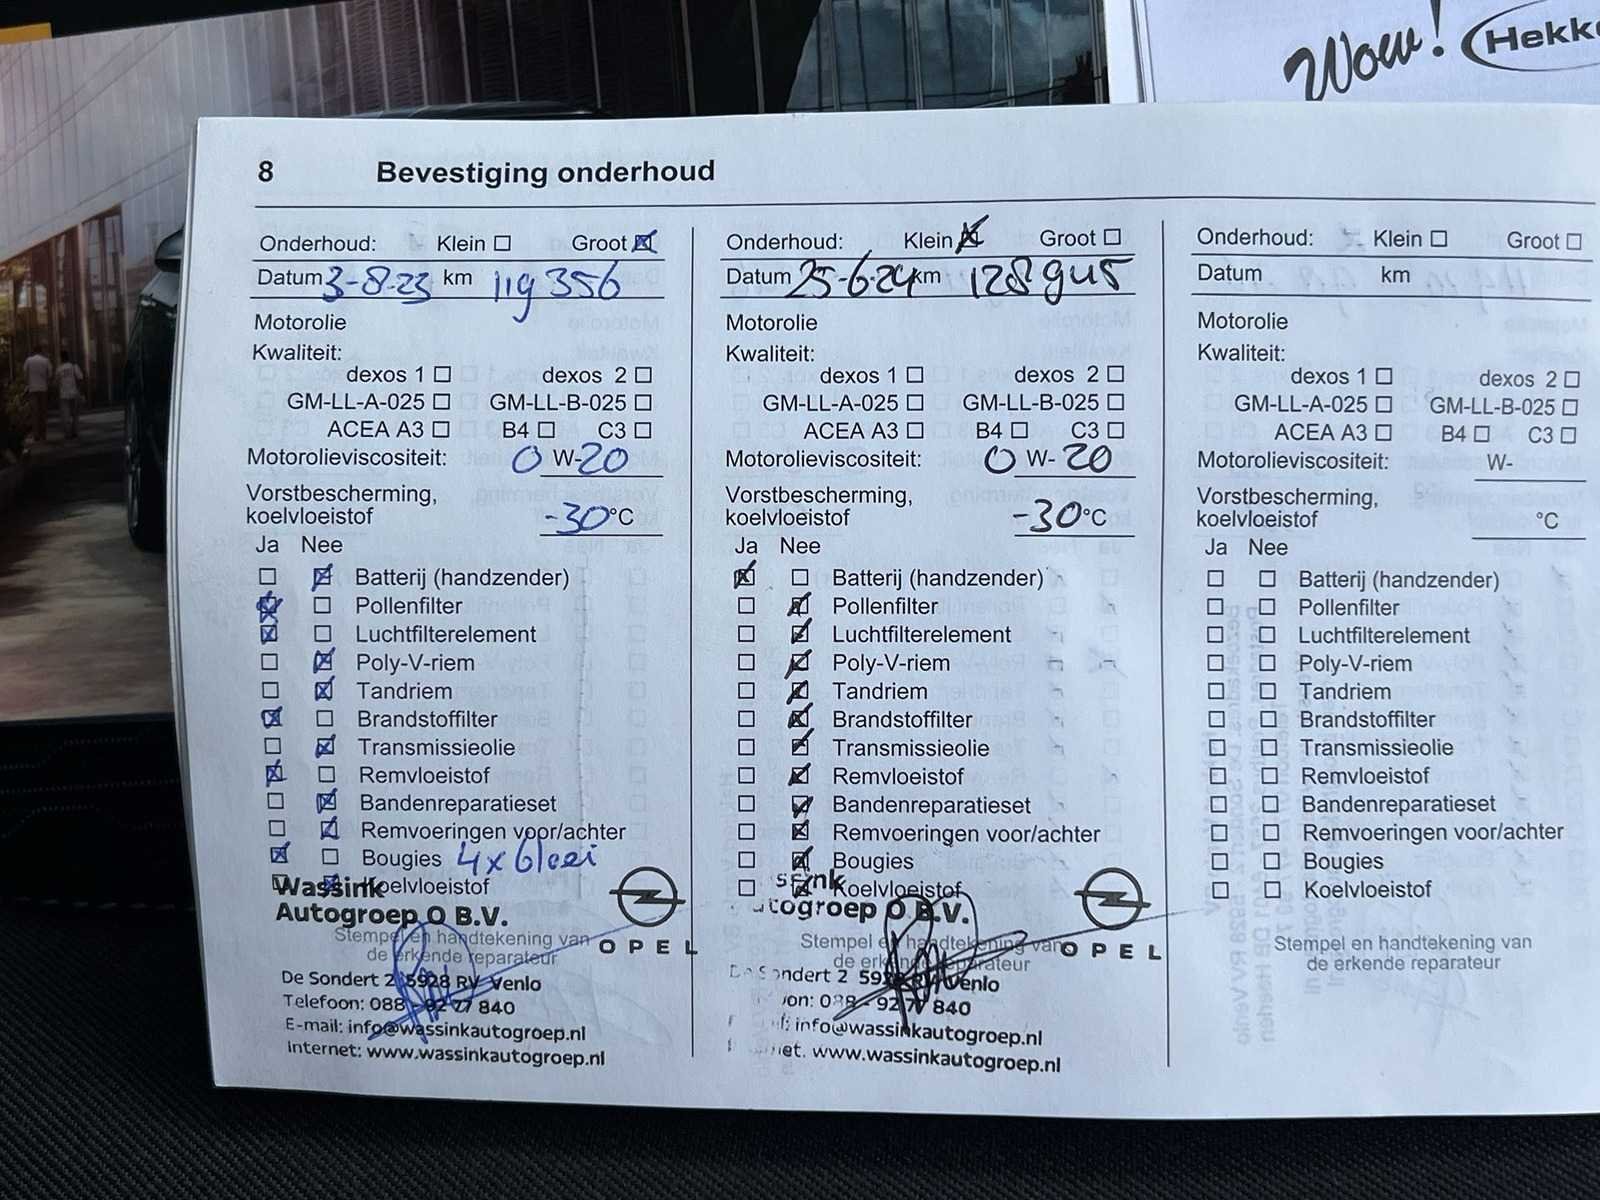 Wow! Hekk
8 Bevestiging onderhoud
Onderhoud: Klein ☐ Groot ☒
Datum 3-8-23 km 119 356
Motorolie
Kwaliteit:
dexos 1 ☐ dexos 2 ☐
GM-LL-A-025 ☐ GM-LL-B-025 ☐
ACEA A3 ☐ B4 ☐ C3 ☐
Motorolieviscositeit: 0 W-20
Vorstbescherming,
koelvloeistof -30°C
Ja Nee
☐ ☒ Batterij (handzender)
☒ ☐ Pollenfilter
☒ ☐ Luchtfilterelement
☐ ☒ Poly-V-riem
☐ ☒ Tandriem
☒ ☐ Brandstoffilter
☐ ☒ Transmissieolie
☒ ☐ Remvloeistof
☐ ☒ Bandenreparatieset
☐ ☒ Remvoeringen voor/achter
☒ ☐ Bougies 4x Gloei
☐ ☒ Koelvloeistof
Wassink
Autogroep O B.V.
OPEL
Stempel en handtekening van
de erkende reparateur
De Sondert 2 5928 RV Venlo
Telefoon: 088 - 92 77 840
E-mail: info@wassinkautogroep.nl
Internet: www.wassinkautogroep.nl
Onderhoud: Klein ☒ Groot ☐
Datum 25-6-24 km 128 945
Motorolie
Kwaliteit:
dexos 1 ☐ dexos 2 ☐
GM-LL-A-025 ☐ GM-LL-B-025 ☐
ACEA A3 ☐ B4 ☐ C3 ☐
Motorolieviscositeit: 0 W-20
Vorstbescherming,
koelvloeistof -30°C
Ja Nee
☒ ☐ Batterij (handzender)
☐ ☒ Pollenfilter
☐ ☒ Luchtfilterelement
☐ ☒ Poly-V-riem
☐ ☒ Tandriem
☐ ☒ Brandstoffilter
☐ ☒ Transmissieolie
☐ ☒ Remvloeistof
☐ ☒ Bandenreparatieset
☐ ☒ Remvoeringen voor/achter
☐ ☒ Bougies
☐ ☒ Koelvloeistof
ss nk
utogroep O B.V.
OPEL
Stempel en handtekening van
de erkende reparateur
De Sondert 2 5928 RV Venlo
on: 088 - 92 77 840
l: info@wassinkautogroep.nl
net. www.wassinkautogroep.nl
Onderhoud: Klein ☐ Groot ☐
Datum km
Motorolie
Kwaliteit:
dexos 1 ☐ dexos 2 ☐
GM-LL-A-025 ☐ GM-LL-B-025 ☐
ACEA A3 ☐ B4 ☐ C3 ☐
Motorolieviscositeit: W-
Vorstbescherming,
koelvloeistof °C
Ja Nee
☐ ☐ Batterij (handzender)
☐ ☐ Pollenfilter
☐ ☐ Luchtfilterelement
☐ ☐ Poly-V-riem
☐ ☐ Tandriem
☐ ☐ Brandstoffilter
☐ ☐ Transmissieolie
☐ ☐ Remvloeistof
☐ ☐ Bandenreparatieset
☐ ☐ Remvoeringen voor/achter
☐ ☐ Bougies
☐ ☐ Koelvloeistof
Stempel en handtekening van
de erkende reparateur